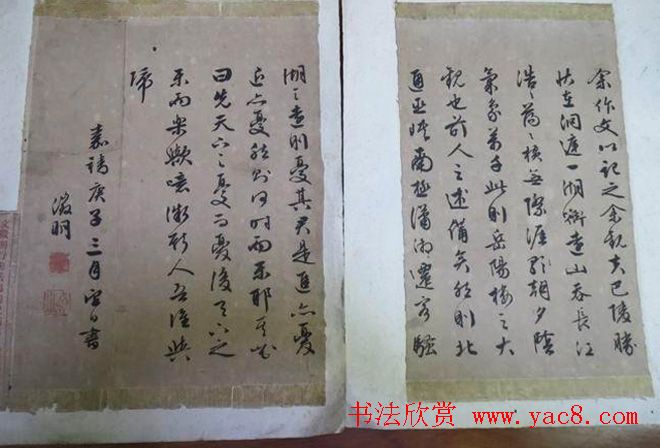 余作文以記之余觀夫巴陵勝
狀在洞庭一湖銜遠山吞長江
浩〻蕩〻橫無際涯朝夕陰
氣象萬千此則岳陽樓之大
觀也前人之述備矣然則北
通巫峽南極瀟湘遷客騷
湖之遠則憂其君是進亦憂
退亦憂然則何時而樂耶其必
曰先天下之憂而憂後天下之
樂而樂歟噫微斯人吾誰與
歸
嘉靖庚子三月望日書
徵明
书法欣赏 www.yac8.com